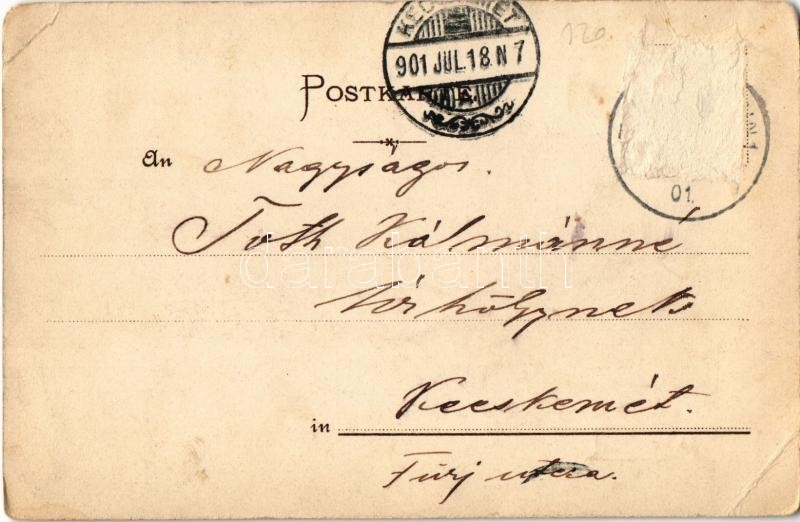 KECSKEMÉT
901 JUL.18.N7
120
POSTKARTE.
01.
An Nagyságos.
Tóth Kálmánné
darabanth
Úrhölgynek
Kecskemét.
in
Fürj utcza.